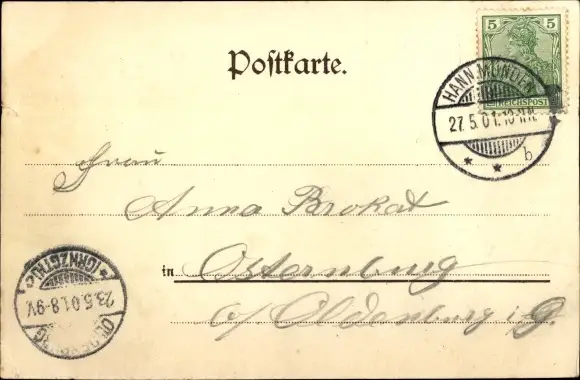 5 5
REICHSPOST
Postkarte.
HANN. MÜNDEN
27.5.01.10-11V.
* * b
Frau
Anna Brokat
in Osternburg
b/ Oldenburg i. G.
(GRHZGTH.)
23.5.01.8-9V
OLDENBURG